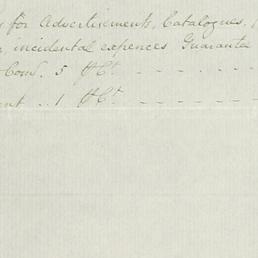 for Advertisements, Catalogues,
incidental expences Guarantee
Com. 5 P Ct. - - - - -
.. 1 P Ct. - - - - -